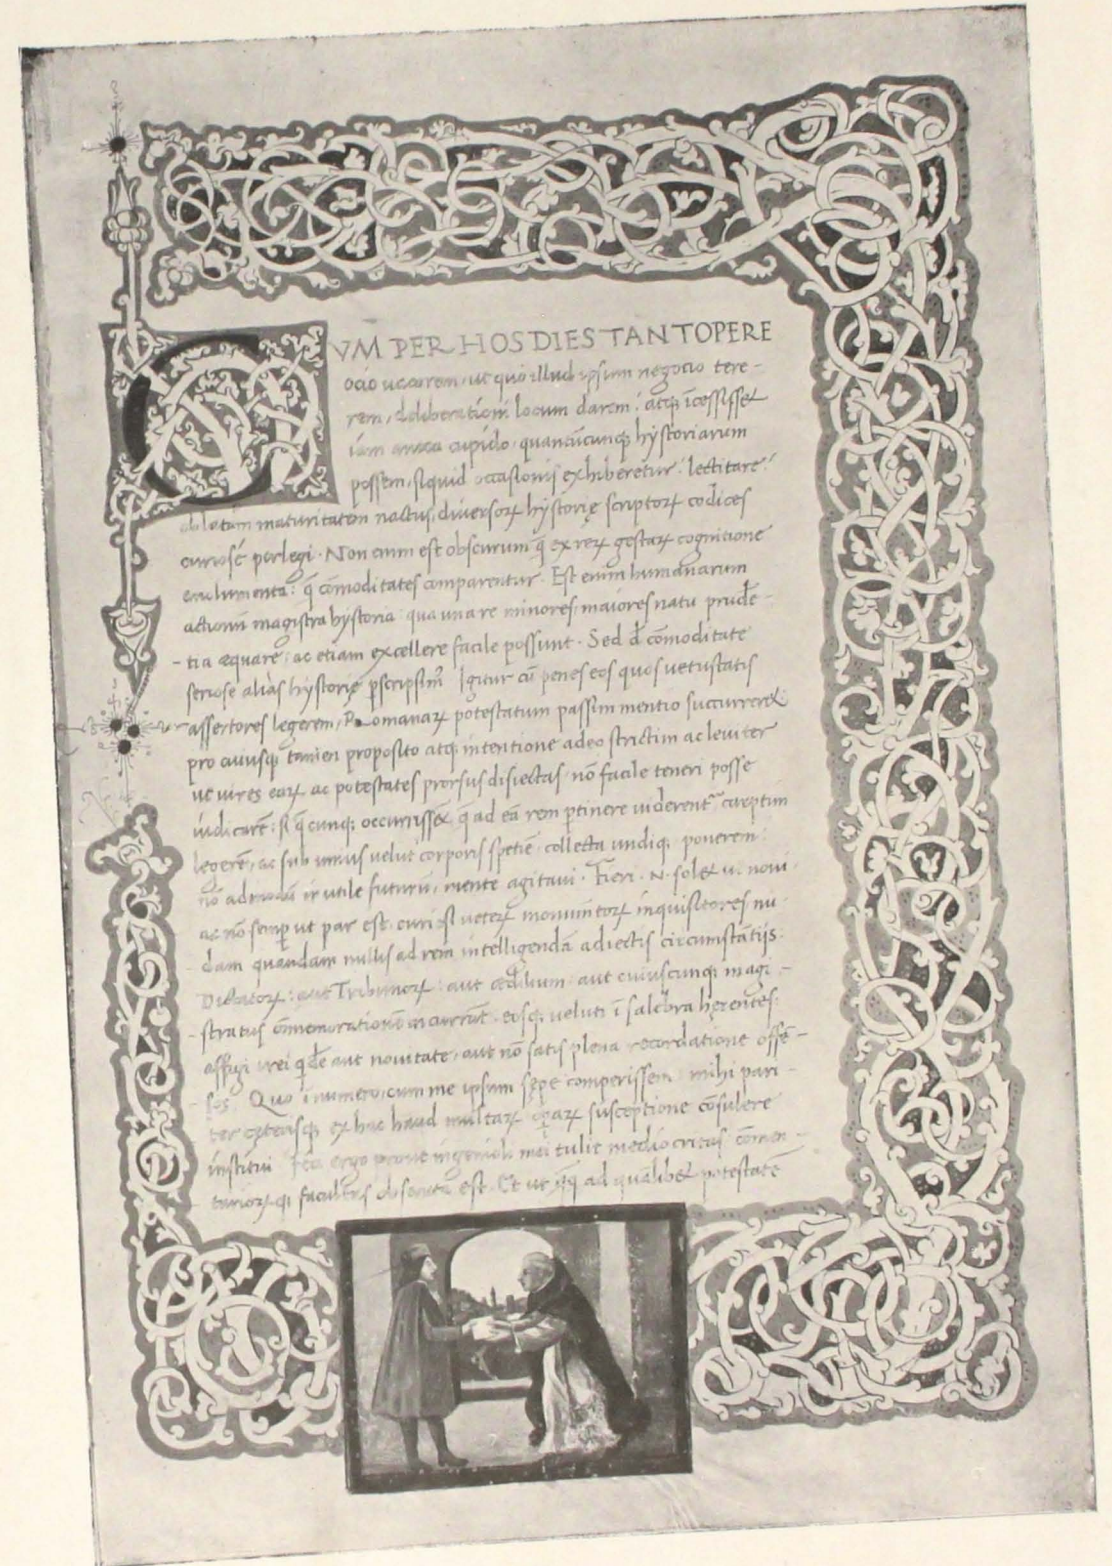 CVM PER HOS DIES TANTOPERE
ocio vacarem, ut quo illud ipsum negocio tere-
rem, deliberationi locum darem: atq; icessisset
iam cupido, quancuncunq; hystoriarum
possem, siquid occasionis exhiberetur: lectitare:
oblatam maturitatem nactus, diversoꝝ hystorię scriptoꝝ codices
curiose perlegi. Non enim est obscurum q̄ ex reꝝ gestaꝝ cognitione
emolumenta: q̄ cōmoditates comparentur. Est enim humanarum
actionū magistra hystoria: qua una re minores, maiores natu prudē-
-tia æquare: ac etiam excellere facile possunt. Sed d̄ cōmoditate
seriose aliàs hystorię Igitur cū penes eos quos vetustatis
assertores legerem, Romanaꝝ potestatum passim mentio succurreret
pro cuiusq; tamen proposito atq; intentione adeo strictim ac leviter
ut vires eaꝝ ac potestates prorsus disiectas, nō facile teneri posse
iudicarē: si q̄cunq; occurrissēt, q̄ ad eā rem ptinere viderentr̄ cœptim
legerē, ac sub unius velut corporis spetiē, collecta undiq; ponerem:
nō admodū inutile futurū, mente agitavi. Fieri. N. solet ut novi
ac nō semp̄ ut par est, curiosi veteꝝ monumētoꝝ inquisitores nu-
dam quandam nullis ad rem intelligendā adiectis circumstātijs.
Dictatoꝝ: aut Tribunoꝝ: aut ædilium: aut cuiuscunq; magi-
-stratus cōmemorationē incurrūt, eosq; veluti ī salebra hęrentes,
affligi rei aut novitate, aut nō satis plena recordatione offē-
-sos. Quo ī numero, cum me ipsum sępe comperissem: mihi pari-
ter cęterisq; ex hac haud multaꝝ opaꝝ susceptione cōsulere
institui ergo prout ingenioli mei tulit mediocritas cōmen-
tarioꝝq; facultas est. Et ut ad quālibet potestatē